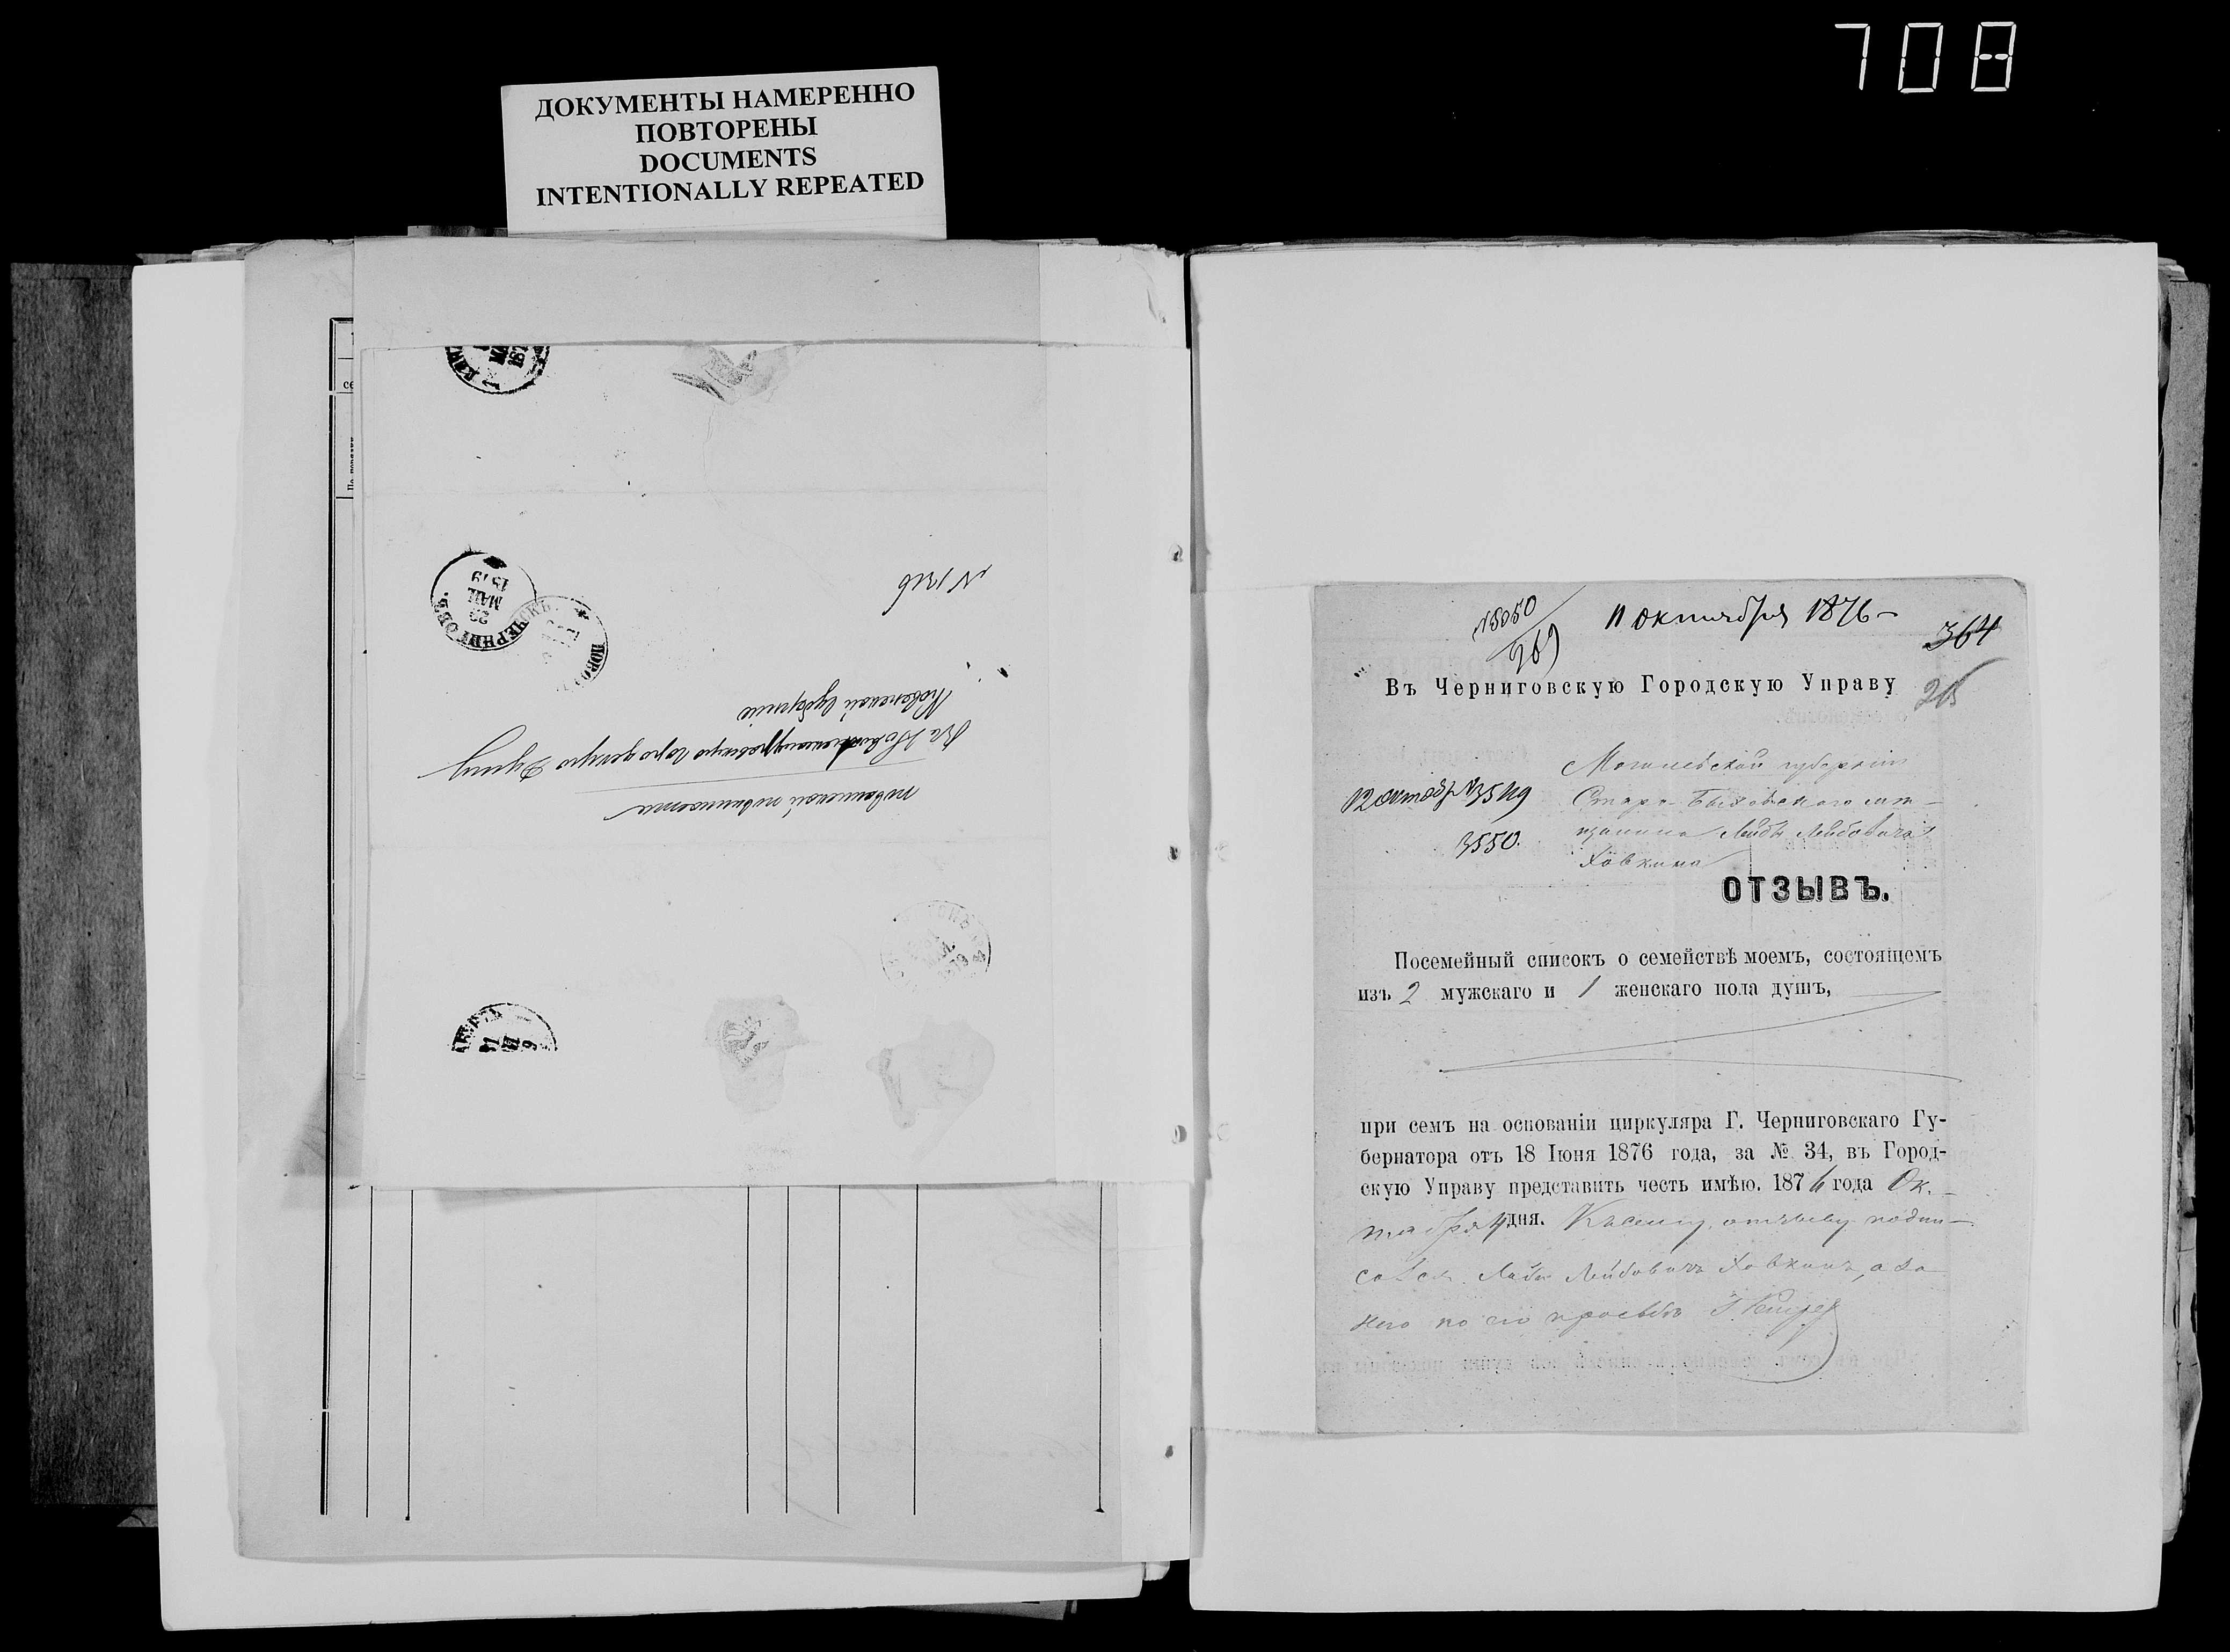 708
ДОКУМЕНТЫ НАМЕРЕННО
ПОВТОРЕНЫ
DOCUMENTS
INTENTIONALLY REPEATED
се
повинности
Въ городскую Думу
Ковенской губерніи
N 1316
ЧЕРНИГОВЪ.
23
МАЯ
1879
11 октября 1876
N 5050
269
364
Въ Черниговскую Городскую Управу
Могилевской губерніи
12 октяб N 3549
Старо-Быховскаго мѣ-
3550.
щанина Лейбы Лейбовича
Ховкина
ОТЗЫВЪ.
Посемейный списокъ о семействѣ моемъ, состоящемъ
изъ 2 мужскаго и 1 женскаго пола душъ,
при семъ на основаніи циркуляра Г. Черниговскаго Гу-
бернатора отъ 18 Іюня 1876 года, за № 34, въ Город-
скую Управу представить честь имѣю. 1876 года Ок-
тября 11 дня. Къ сему отзыву подпи-
сался Лейба Лейбовичъ Ховкинъ, а за
него по его просьбѣ